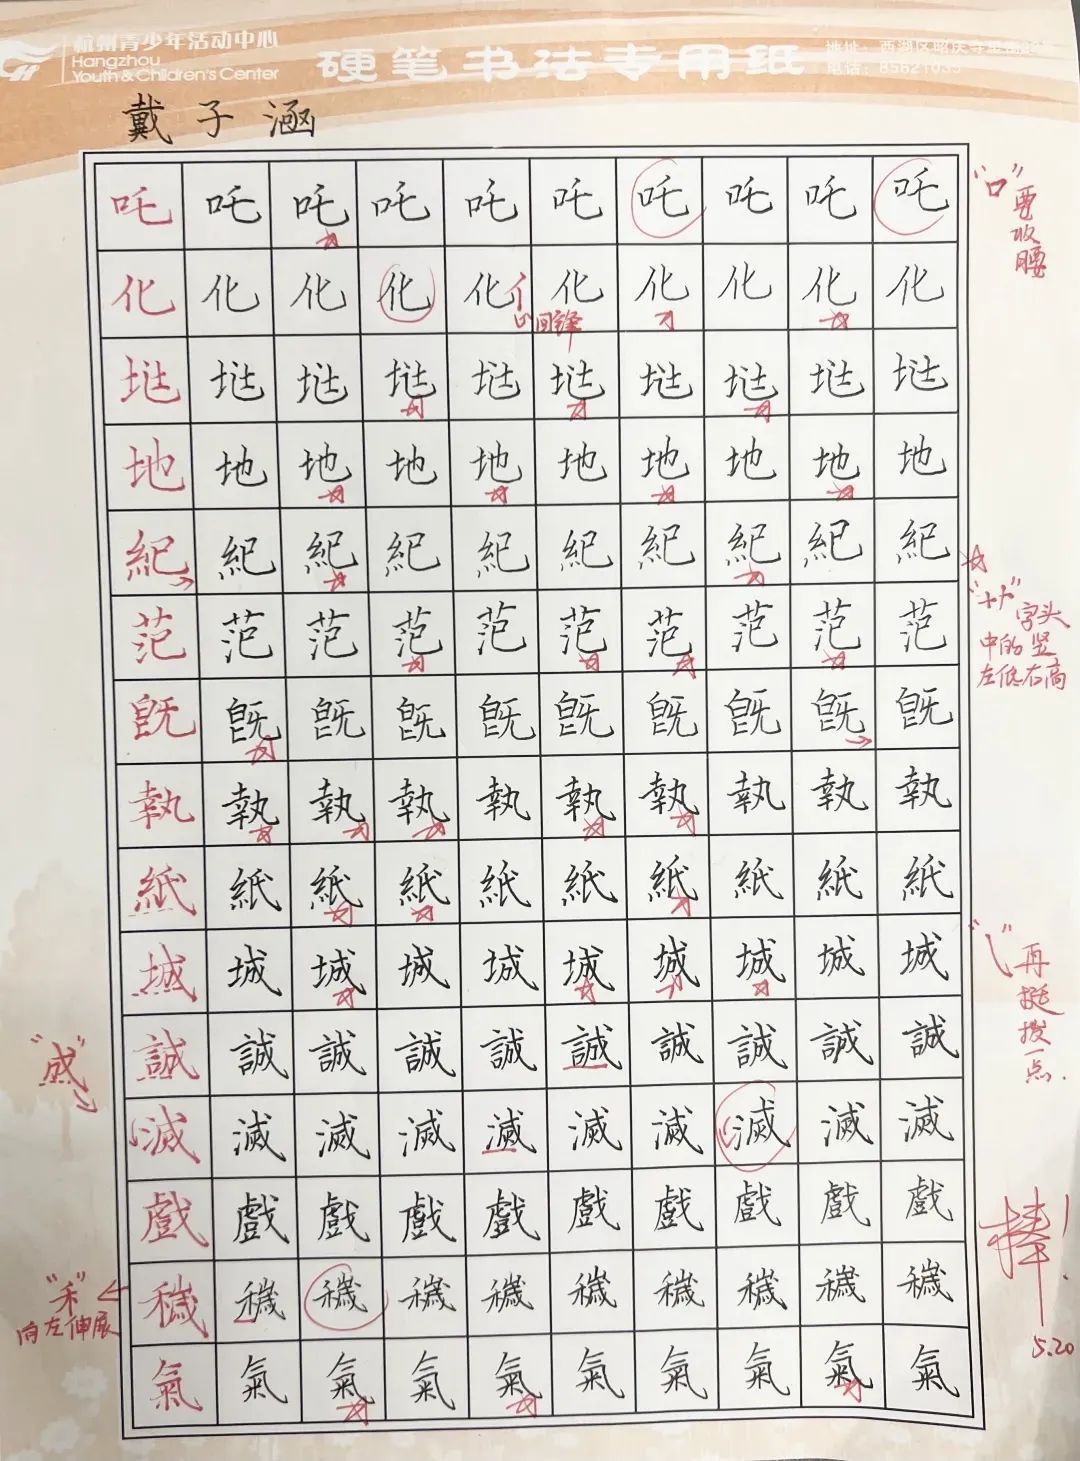 杭州青少年活动中心
Hangzhou
Youth & Children's Center
硬笔书法专用纸
电话：85821035
戴子涵
吒 吒 吒 吒 吒 吒 吒 吒 吒 吒
"口"要收腰
化 化 化 化 化 化 化 化 化 化
回锋
地 地 地 地 地 地 地 地 地 地
紀 紀 紀 紀 紀 紀 紀 紀 紀 紀
范 范 范 范 范 范 范 范 范 范
"艹"字头
中的竖
左低右高
執 執 執 執 執 執 執 執 執 執
紙 紙 紙 紙 紙 紙 紙 紙 紙 紙
城 城 城 城 城 城 城 城 城 城
"㇂"再挺拔一点.
誠 誠 誠 誠 誠 誠 誠 誠 誠 誠
"成"
滅 滅 滅 滅 滅 滅 滅 滅 滅 滅
戲 戲 戲 戲 戲 戲 戲 戲 戲 戲
棒！
穢 穢 穢 穢 穢 穢 穢 穢 穢 穢
"禾"
向左伸展
氣 氣 氣 氣 氣 氣 氣 氣 氣 氣
5.20